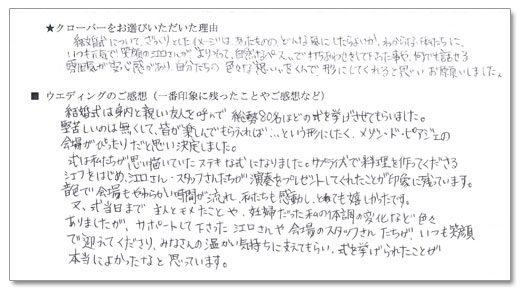 ★クローバーをお選びいただいた理由
結婚式について、ざっくりとしたイメージは、あったものの、どんな風にしたらよいか、わからない私たちに、
いつも元気で笑顔の江口さんが、よりそって、自然なペースでうちあわせをしてくださった事や、何でも話せる
雰囲気が安心感があり自分たちの色々な思いをくんで、形にしてくれると思いお願いしました。
■ ウエディングのご感想（一番印象に残ったことやご感想など）
結婚式は身内と親しい友人を呼んで 総勢80名ほどの式を挙げさせてもらいました。
堅苦しいのは無くして、皆が楽しんでもらえれば…という形にしたく、メゾン・ド・ピエジェの
会場がぴったりだと思い決定しました。
式は私たちが思い描いていたステキな式になりました。サプライズで料理を作ってくださる
シェフをはじめ、江口さん・スタッフさんたちが演奏をプレゼントしてくれたことが印象に残っています。
音色で会場もやわらかい時間が流れ、私たちも感動し、とても嬉しかったです。
又、式当日まで 主人とモメたことや、妊婦だった私の体調の変化など色々
ありましたが、サポートして下さった江口さんや会場のスタッフさんたちが、いつも笑顔
で迎えてくださり、みなさんの温かい気持ちに支えてもらい、式を挙げられたことが
本当によかったなと思っています。